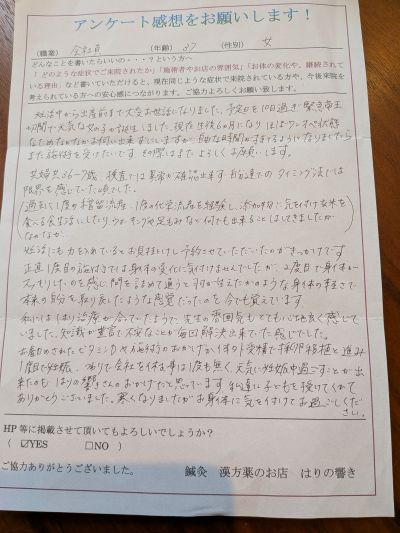 アンケート感想をお願いします！
（職業） 会社員 （年齢） 37 （性別） 女
どんなことを書いたらいいの・・・？という方へ
「どのような症状でご来院されたか」「施術者やお店の雰囲気」「お体の変化や、継続されている理由」など書いていただけると、現在同じような症状で来院されている方や、今後来院を考えられている方への安心感につながります。ご協力よろしくお願い致します。
妊活中から出産前まで大変お世話になりました。予定日を10日過ぎ緊急帝王
切開で元気な女の子が誕生しました。現在生後6ヶ月になり ほぼワンオペ状態
なためなかなかお伺いに出来ずにいますが、自由な時間ができるようになりましたら
また施術を受けたいです。その際はまたよろしくお願いします。
夫婦共36〜37歳、検査では異常が確認出来ず自己流でのタイミング法には
限界を感じていた頃でした。
（過去に1度の稽留流産、1度の化学流産を経験し、添加物に気を付け玄米を
食べる食生活にしたり、ウォーキングや足もみなど何でも出来ることはしてきましたが
なかなか…
妊活にも力を入れているとお見掛けし予約させていただいたのがきっかけです。
正直1度目の施術では身体の変化に気付けませんでしたが、2度目で身体が
スッキリしたのを感じ、間を詰めて通うと羽が生えたかのような身体の軽さで
本来の自分を取り戻したような感覚だったのを今でも覚えています。
私にははり治療が合っていたようで、先生の雰囲気もとても心地良く感じて
いました。知識が豊富で不安なことが毎回解決出来ていた感じでした。
お薦めされたビタミンDや施術のおかげか、体外受精で採卵移植と進み
1度目で妊娠、つわりで会社を休む事は1度も無く、元気に妊娠中過ごすことが出
来たのも はりの響さんのおかげだと思っています。私達に子どもを授けてくれて
ありがとうございました。寒くなりましたがお身体に気を付けてお過ごしくだ
さい。
HP 等に掲載させて頂いてもよろしいでしょうか？
（ ☑YES □NO ）
ご協力ありがとうございました。 鍼灸 漢方薬のお店 はりの響き